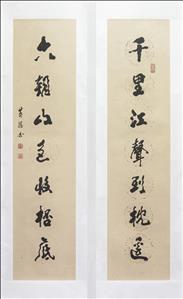 千里江聲到枕邊
六朝山色收底